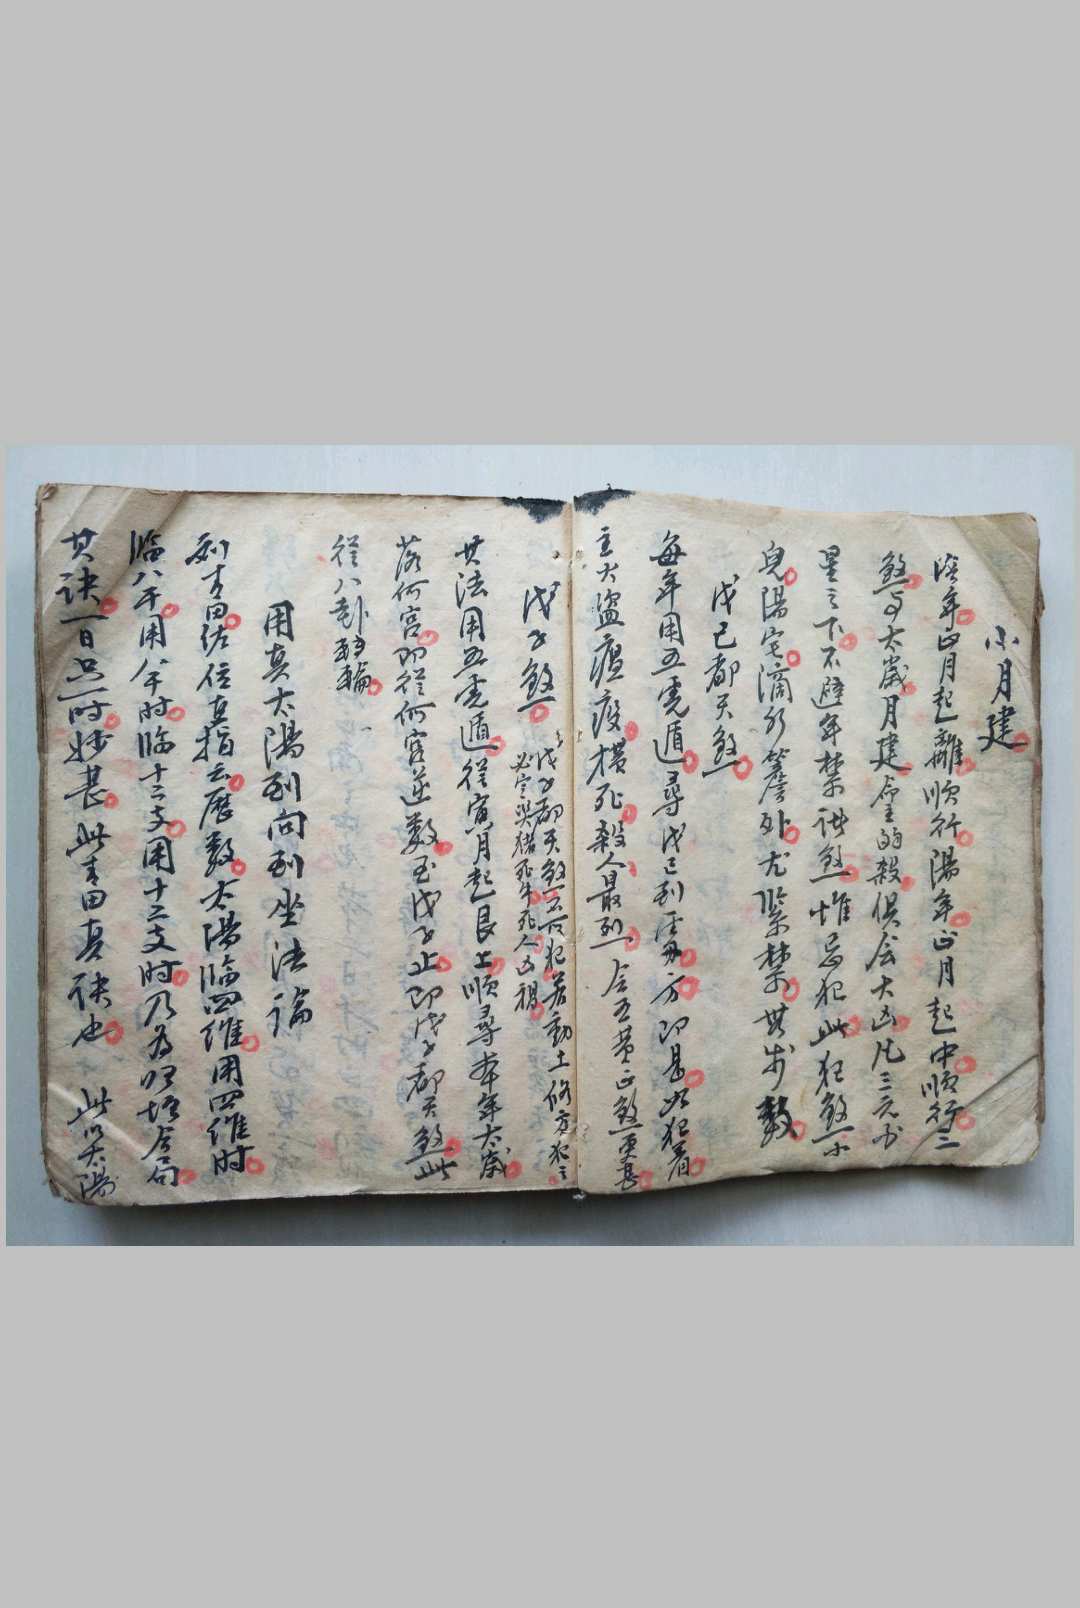 小月建
陰年正月起離順行陽年正月起中順行二
煞與太歲月建金的殺俱会大凶凡三元
星之下不避年禁諸煞惟忌犯此犯煞小
兒陽宅滴水簷外尤緊禁其步數
戊己都天煞
每年用五虎遁尋戊己到方即是此犯着
主大盜瘟疫橫死殺人最烈会五黄正煞更甚
戊子煞 戊子都天煞不可犯若動土修方犯之
必定哭猪死牛死人凶禍
其法用五虎遁從寅月起艮上順尋本年太歲
落何宮即從何宮逆數至戊子止即戊子都天煞此
從八卦輪
用真太陽到向到坐法論
劉青田佐位直指云曆數太陽臨四維用四維時
臨八干用八干时臨十二支用十二支时乃為合局
其訣一日只一时妙甚此青田真訣也 此以太陽